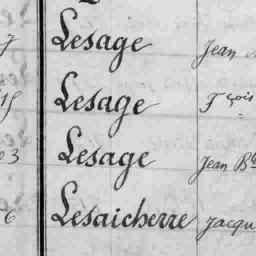 7 Lesage Jean
15 Lesage Fçois
3 Lesage Jean Bte
6 Lesaicherre Jacqu